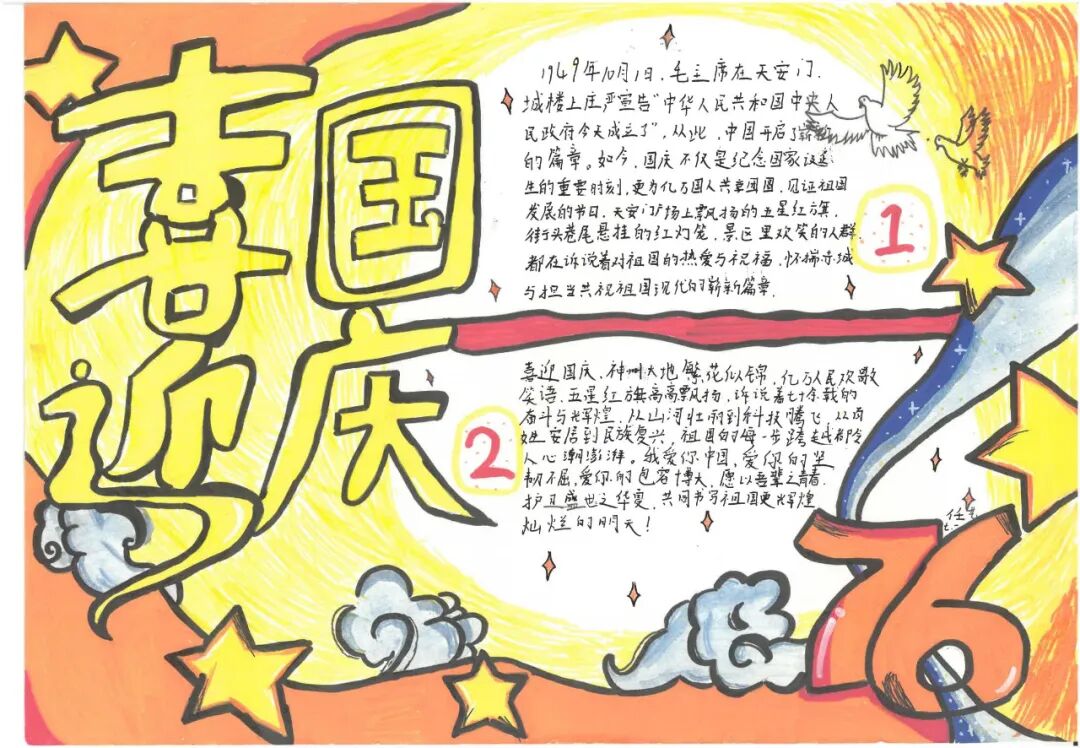 喜迎
国庆
1949年10月1日,毛主席在天安门
城楼上庄严宣告"中华人民共和国中央人
民政府今天成立了",从此,中国开启了
的篇章。如今,国庆不仅是纪念国家诞
生的重要时刻,更为亿万国人共享团圆,见证祖国
发展的节日,天安门广场上飘扬的五星红旗,
街头巷尾悬挂的红灯笼,景区里欢笑的人群,
都在诉说着对祖国的热爱与祝福,怀揣
与担当共祝祖国现代的崭新篇章.
1
喜迎国庆、神州大地繁花似锦,亿万人民欢歌
笑语,五星红旗高高飘扬,诉说着七十余载的
奋斗与辉煌,从山河壮丽到科技腾飞,从
安居到民族复兴,祖国的每一步跨越都令
人心潮澎湃。我爱你中国,爱你的坚
韧不屈,爱你的包容博大,愿以吾辈之青春,
护卫盛世之华夏,共同书写祖国更辉煌
灿烂的明天!
2
任
76